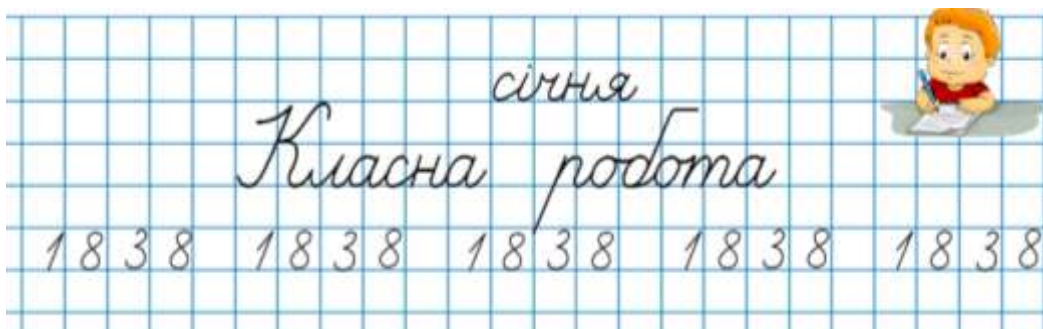 січня
Класна робота
1 8 3 8 1 8 3 8 1 8 3 8 1 8 3 8 1 8 3 8